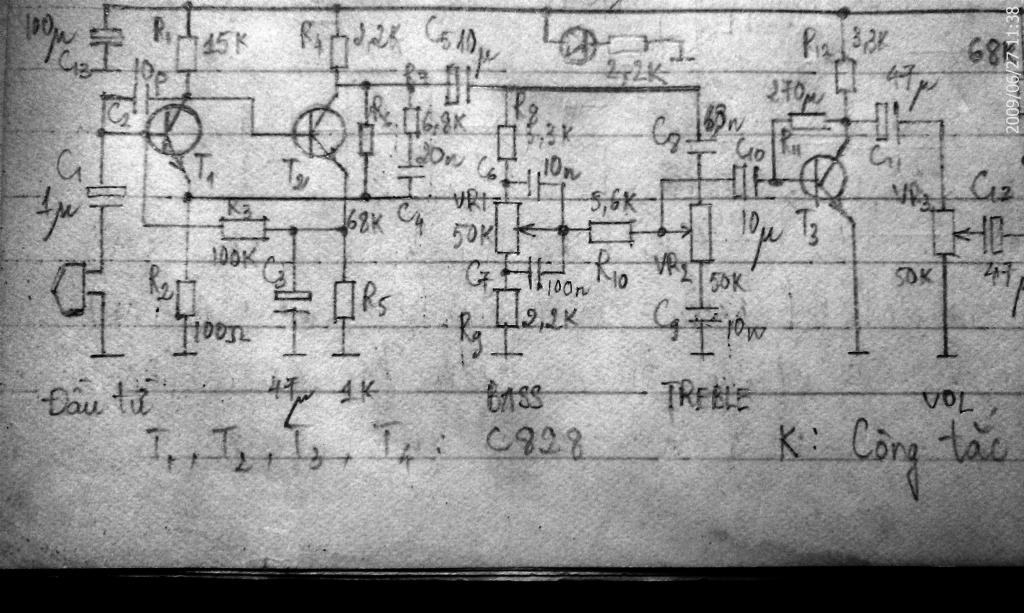 100μ
C13
R1
15K
10p
C2
T1
C1
1μ
R4
2,2K
T2
R3
100K
C3
47μ
R2
100Ω
R5
1K
68K
R6
R7
6,8K
20n
C4
C5 10μ
2,2K
R8
3,3K
C6
10n
VR1
50K
C7
100n
R9
2,2K
5,6K
R10
C8
68n
C10
10μ
VR2
50K
C9
10n
270μ
R11
R12
3,3K
T3
47μ
C11
VR3
50K
C12
47μ
68K
Đầu từ
BASS
TREBLE
VOL
T1, T2, T3, T4: C828
K: Công tắc
2009/06/27 5:1:38